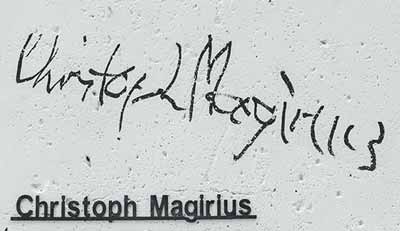 Christoph Magirius
Christoph Magirius